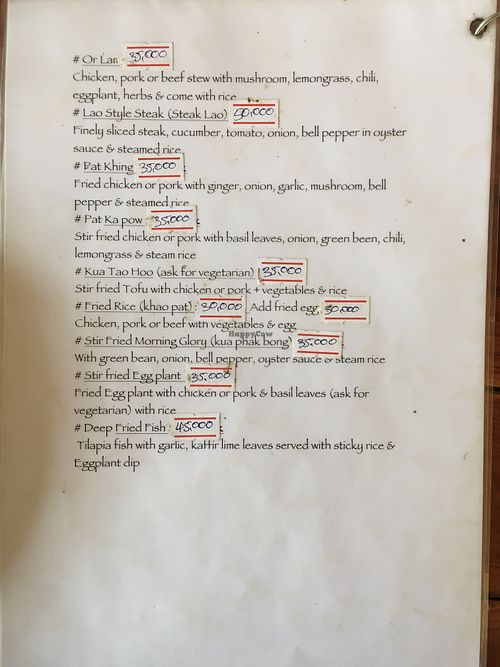 # Or Lan 35,000
Chicken, pork or beef stew with mushroom, lemongrass, chili,
eggplant, herbs & come with rice
# Lao Style Steak (Steak Lao) 50,000
Finely sliced steak, cucumber, tomato, onion, bell pepper in oyster
sauce & steamed rice
# Pat Khing 35,000
Fried chicken or pork with ginger, onion, garlic, mushroom, bell
pepper & steamed rice
# Pat Ka pow : 35,000
Stir fried chicken or pork with basil leaves, onion, green been, chili,
lemongrass & steam rice
# Kua Tao Hoo (ask for vegetarian) 35,000
Stir fried Tofu with chicken or pork + vegetables & rice
# Fried Rice (khao pat) : 30,000 Add fried egg 30,000
Chicken, pork or beef with vegetables & egg
HappyCow
# Stir Fried Morning Glory (kua phak bong) 35,000
With green bean, onion, bell pepper, oyster sauce & steam rice
# Stir fried Egg plant : 35,000
Fried Egg plant with chicken or pork & basil leaves (ask for
vegetarian) with rice
# Deep Fried Fish : 45,000
Tilapia fish with garlic, kaffir lime leaves served with sticky rice &
Eggplant dip